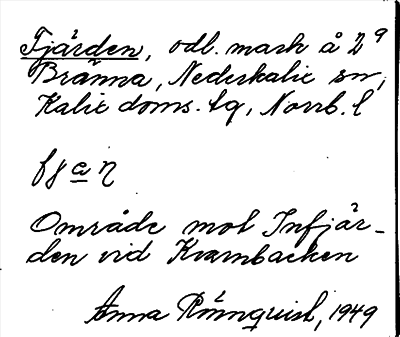 Fjärden, odl. mark å 2⁹
Bränna, Nederkalix sn,
Kalix doms. tg, Norrb. l
fj a̲ ɳ
Område mot Infjär-
den vid Kvarnbacken
Anna Rönnquist, 1949